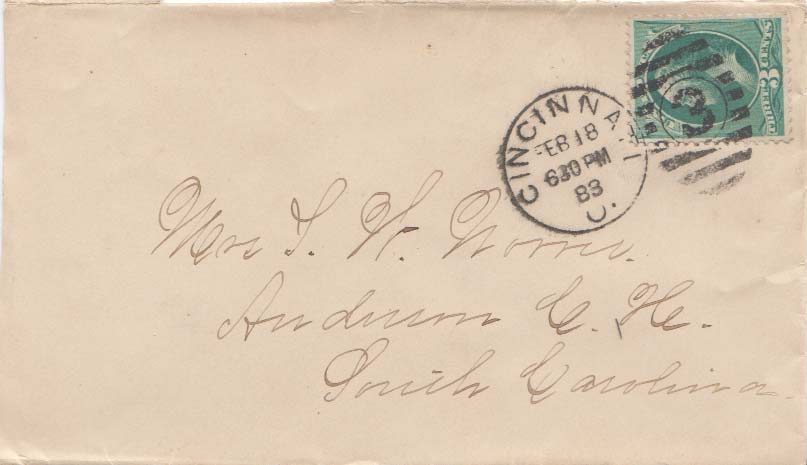 CINCINNATI
FEB 18
630 PM
83
O.
3
Mrs T. W. Norris.
Anderson C. H.
South Carolina